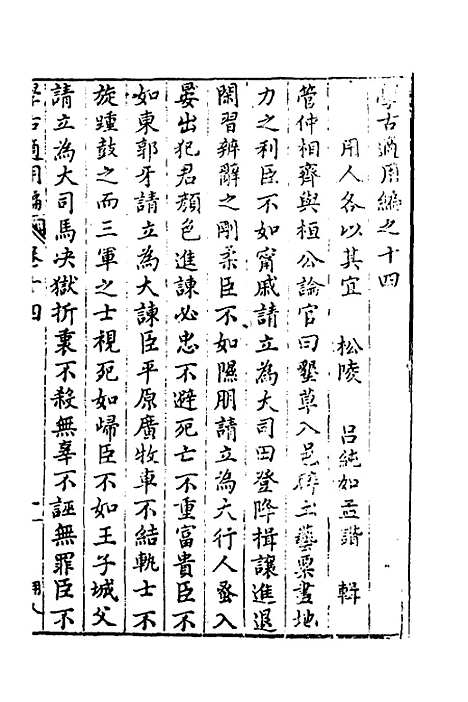 學古適用編之十四
用人各以其宜　松陵　呂純如孟諧　輯
管仲相齊與桓公論官曰墾草入邑辟土藝粟盡地
力之利臣不如甯戚請立為大司田登降揖讓進退
閑習辨辭之剛柔臣不如隰朋請立為大行人蚤入
晏出犯君顏色進諫必忠不避死亡不重富貴臣不
如東郭牙請立為大諫臣平原廣牧車不結軌士不
旋踵鼓之而三軍之士視死如歸臣不如王子城父
請立為大司馬决獄折衷不殺無辜不誣無罪臣不
學古適用編　卷十四　一　用人